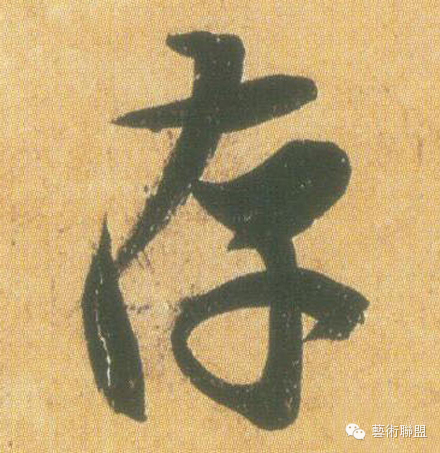 存
藝術聯盟